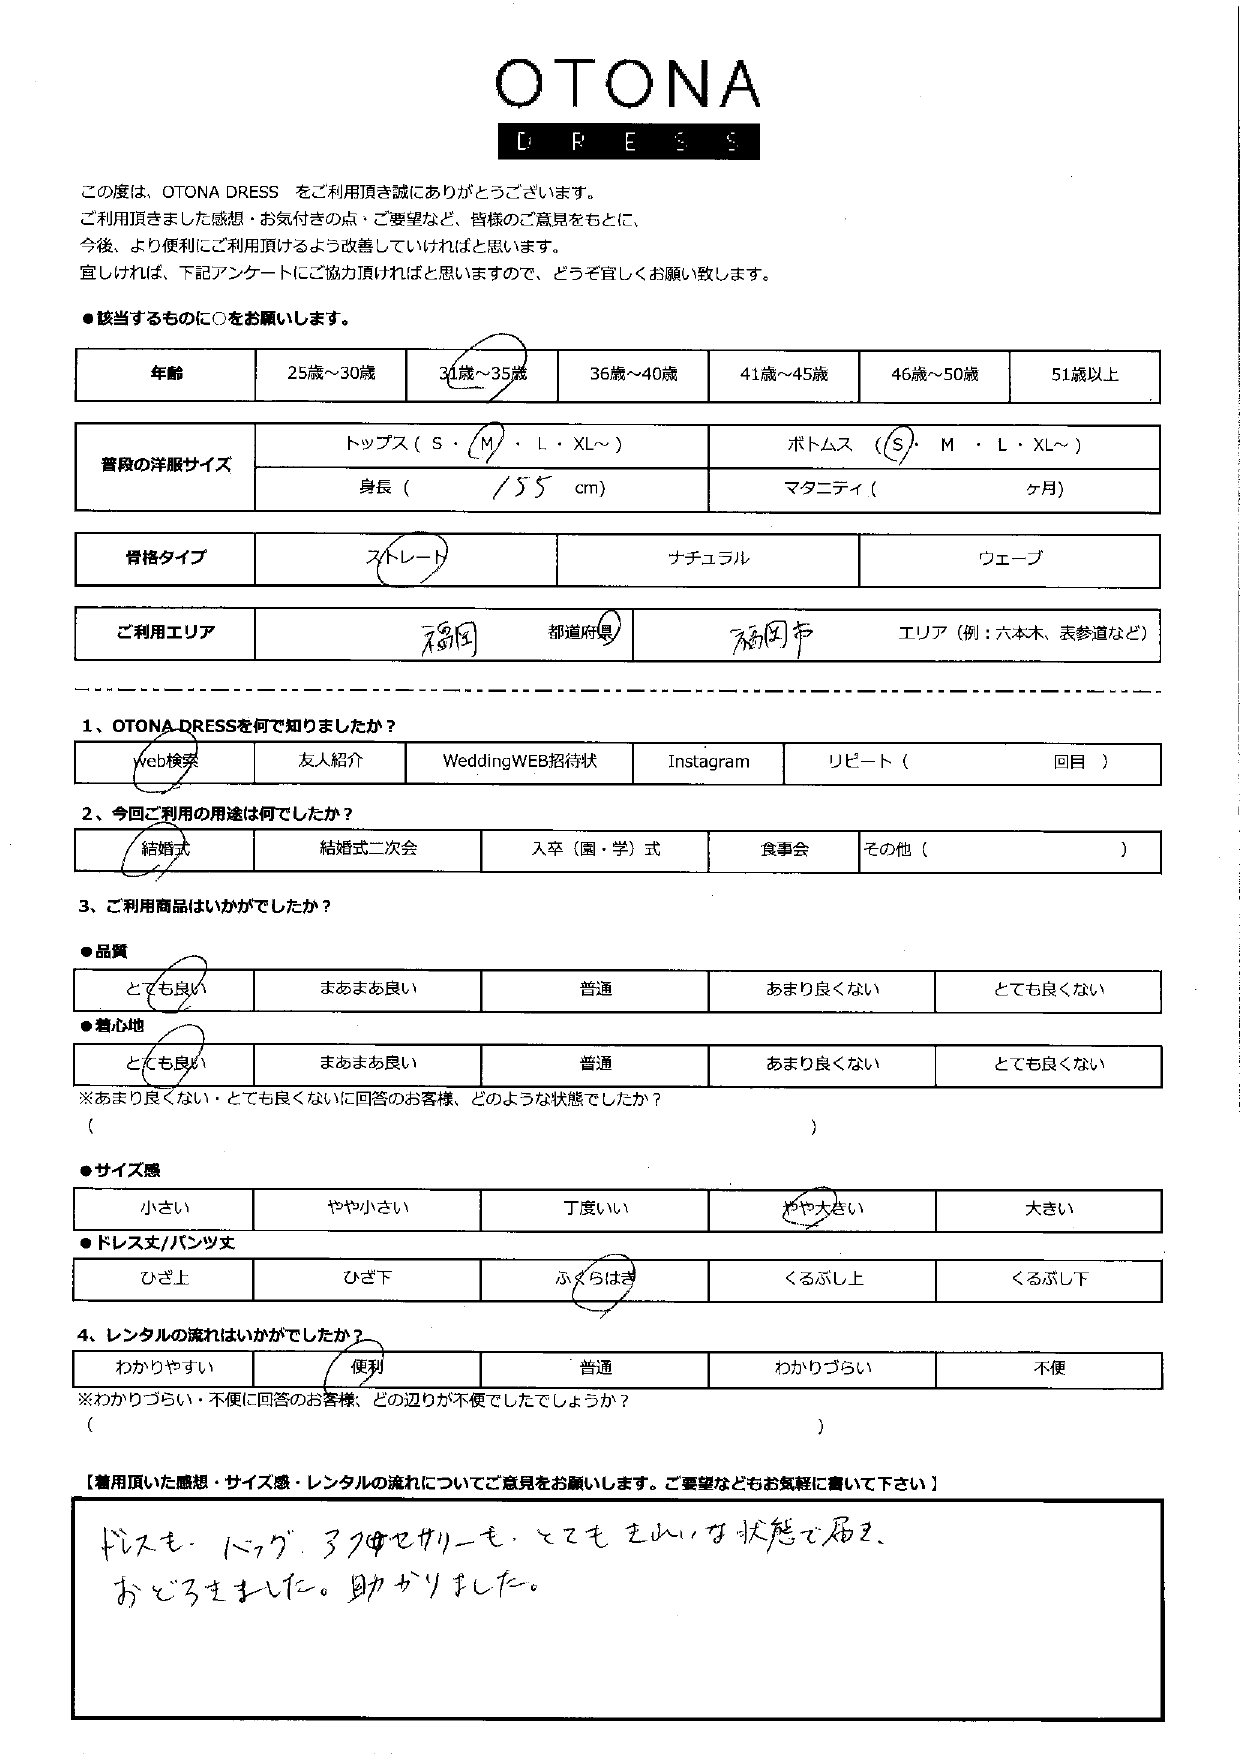 OTONA
DRESS
この度は、OTONA DRESS をご利用頂き誠にありがとうございます。
ご利用頂きました感想・お気付きの点・ご要望など、皆様のご意見をもとに、
今後、より便利にご利用頂けるよう改善していければと思います。
宜しければ、下記アンケートにご協力頂ければと思いますので、どうぞ宜しくお願い致します。
●該当するものに○をお願いします。
年齢 25歳～30歳 31歳～35歳 36歳～40歳 41歳～45歳 46歳～50歳 51歳以上
普段の洋服サイズ トップス ( S ・ M ・ L ・ XL～ ) ボトムス ( S ・ M ・ L ・ XL～ )
身長 ( 155 cm) マタニティ ( ヶ月)
骨格タイプ ストレート ナチュラル ウェーブ
ご利用エリア 福岡 都道府県 福岡市 エリア（例：六本木、表参道など）
1、OTONA DRESSを何で知りましたか？
web検索 友人紹介 WeddingWEB招待状 Instagram リピート ( 回目 )
2、今回ご利用の用途は何でしたか？
結婚式 結婚式二次会 入卒（園・学）式 食事会 その他 ( )
3、ご利用商品はいかがでしたか？
●品質
とても良い まあまあ良い 普通 あまり良くない とても良くない
●着心地
とても良い まあまあ良い 普通 あまり良くない とても良くない
※あまり良くない・とても良くないに回答のお客様、どのような状態でしたか？
( )
●サイズ感
小さい やや小さい 丁度いい やや大きい 大きい
●ドレス丈/パンツ丈
ひざ上 ひざ下 ふくらはぎ くるぶし上 くるぶし下
4、レンタルの流れはいかがでしたか？
わかりやすい 便利 普通 わかりづらい 不便
※わかりづらい・不便に回答のお客様、どの辺りが不便でしたでしょうか？
( )
【着用頂いた感想・サイズ感・レンタルの流れについてご意見をお願いします。ご要望などもお気軽に書いて下さい】
ドレスも、バッグ、アクセサリーも、とてもきれいな状態で届き、
おどろきました。助かりました。